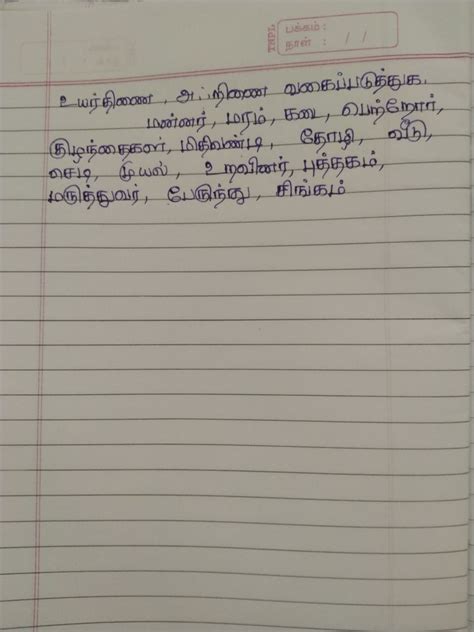 TNPL
பக்கம் :
நாள் : / /
உயர்திணை, அஃறிணை வகைப்படுத்துக.
மன்னர், மரம், கடை, பெற்றோர்,
குழந்தைகள், மிதிவண்டி, தோழி, வீடு,
செடி, முயல், உறவினர், புத்தகம்,
மருத்துவர், பேருந்து, சிங்கம்